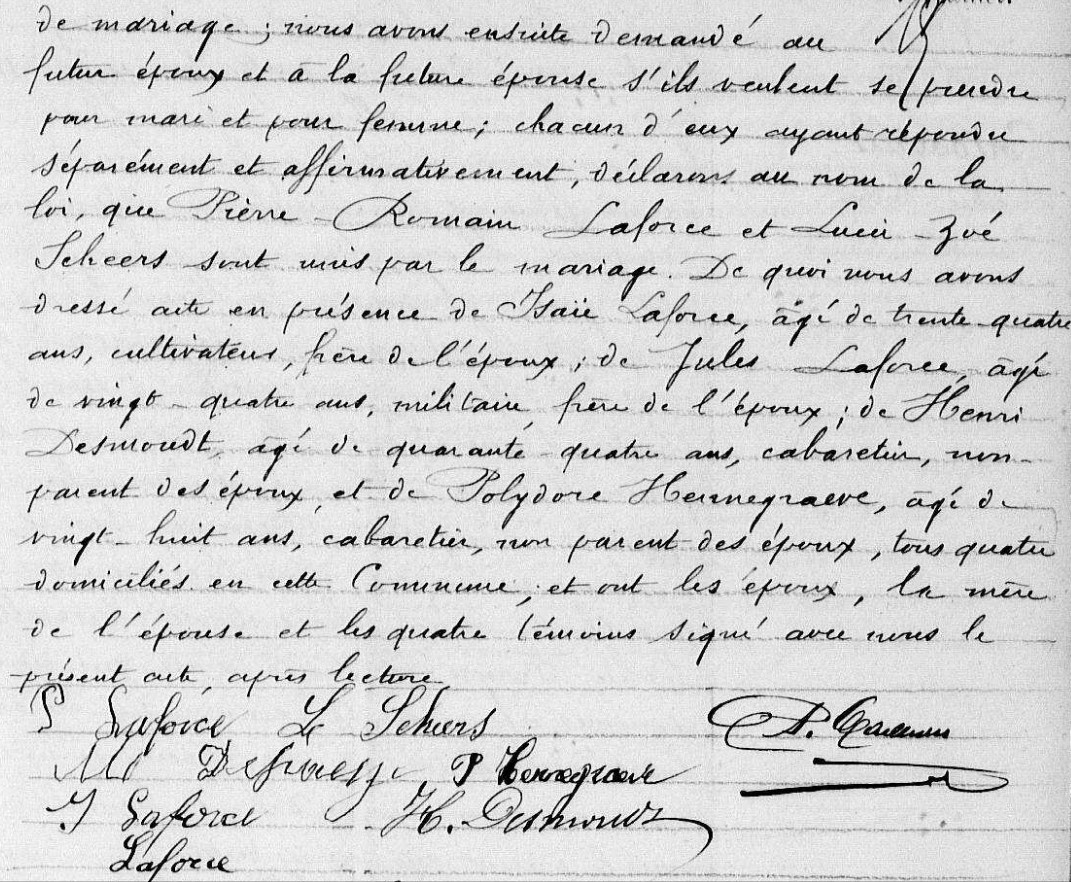 de mariage ; nous avons ensuite demandé au
futur époux et à la future épouse s'ils veulent se prendre
pour mari et pour femme ; chacun d'eux ayant répondu
séparément et affirmativement, déclarons au nom de la
loi, que Pierre - Romain Laforce et Lucie - Zoé
Scheers sont unis par le mariage. De quoi nous avons
dressé acte en présence de Isaïe Laforce, âgé de trente-quatre
ans, cultivateur, frère de l'époux ; de Jules Laforce, âgé
de vingt-quatre ans, militaire, frère de l'époux ; de Henri
Desmoudt, âgé de quarante-quatre ans, cabaretier, non-
parent des époux, et de Polydore Hennegraeve, âgé de
vingt-huit ans, cabaretier, non parent des époux, tous quatre
domiciliés en cette Commune ; et ont les époux, la mère
de l'épouse et les quatre témoins signé avec nous le
présent acte, après lecture
P Laforce L Scheers
P Hennegraeve
J Laforce H. Desmoudt
Laforce